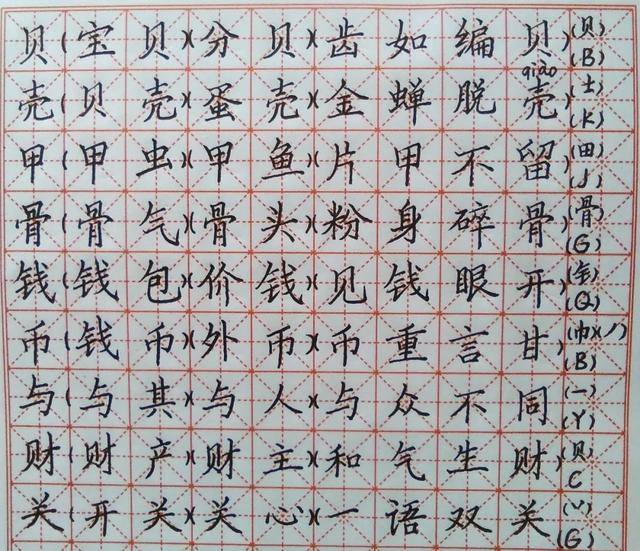 贝(宝贝)(分贝)(齿如编贝)(贝)(B)
壳(贝壳)(蛋壳)(金蝉脱壳qiào)(士)(K)
甲(甲虫)(甲鱼)(片甲不留)(田)(J)
骨(骨气)(骨头)(粉身碎骨)(骨)(G)
钱(钱包)(价钱)(见钱眼开)(钅)(Q)
币(钱币)(外币)(币重言甘)(巾)(丿)(B)
与(与其)(与人)(与众不同)(一)(Y)
财(财产)(财主)(和气生财)(贝)C
关(开关)(关心)(一语双关)(丷)(G)